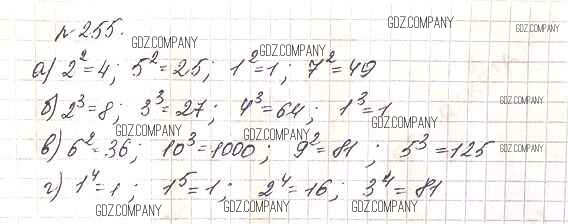 №255.
GDZ.COMPANY GDZ.COMPANY GDZ.COMPANY GDZ.COMPANY
а) 2²=4; 5²=25; 1²=1; 7²=49
GDZ.COMPANY
б) 2³=8; 3³=27; 4³=64; 1³=1
GDZ.COMPANY GDZ.COMPANY GDZ.COMPANY
в) 6²=36; 10³=1000; 9²=81; 5³=125
GDZ.COMPANY
г) 1⁴=1; 1⁵=1; 2⁴=16; 3⁴=81
GDZ.COMPANY GDZ.COMPANY GDZ.COMPANY GDZ.COMPANY